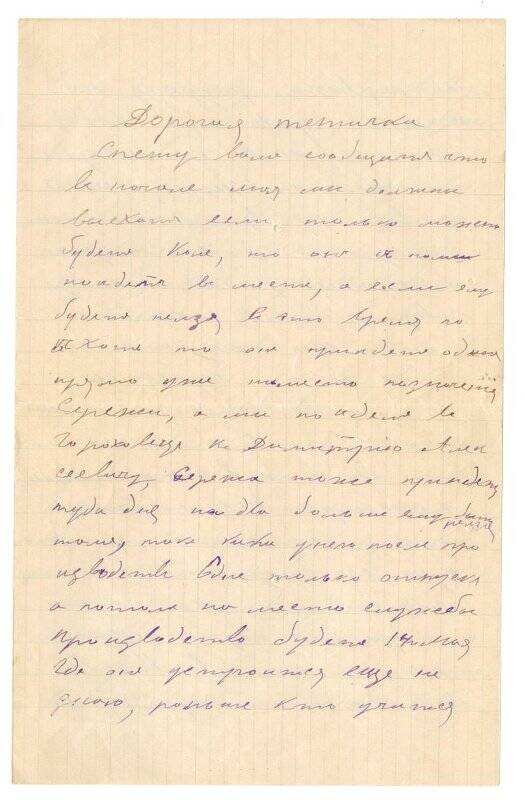 Дорогая тетичка
Спешу вам сообщить что
в начале мая мы должны
выехать если только можно
будетъ Коле, то онъ с нами
поедетъ в месте, а если ему
будетъ нельзя в это время по
ехать то он приедетъ один
прямо уже на место назначенiя
Сережи, а мы поедемъ в
Гороховецъ к Димитрiю Алек
сеевичу, Сережа тоже приедетъ
туда дня на два больше ему быть нельзя
там, так какъ у него после про
изводства 6 дне только отпуска
а потом на место службы
производство будетъ 14 мая
Где он устроится еще не
знаю, раньше кто учится